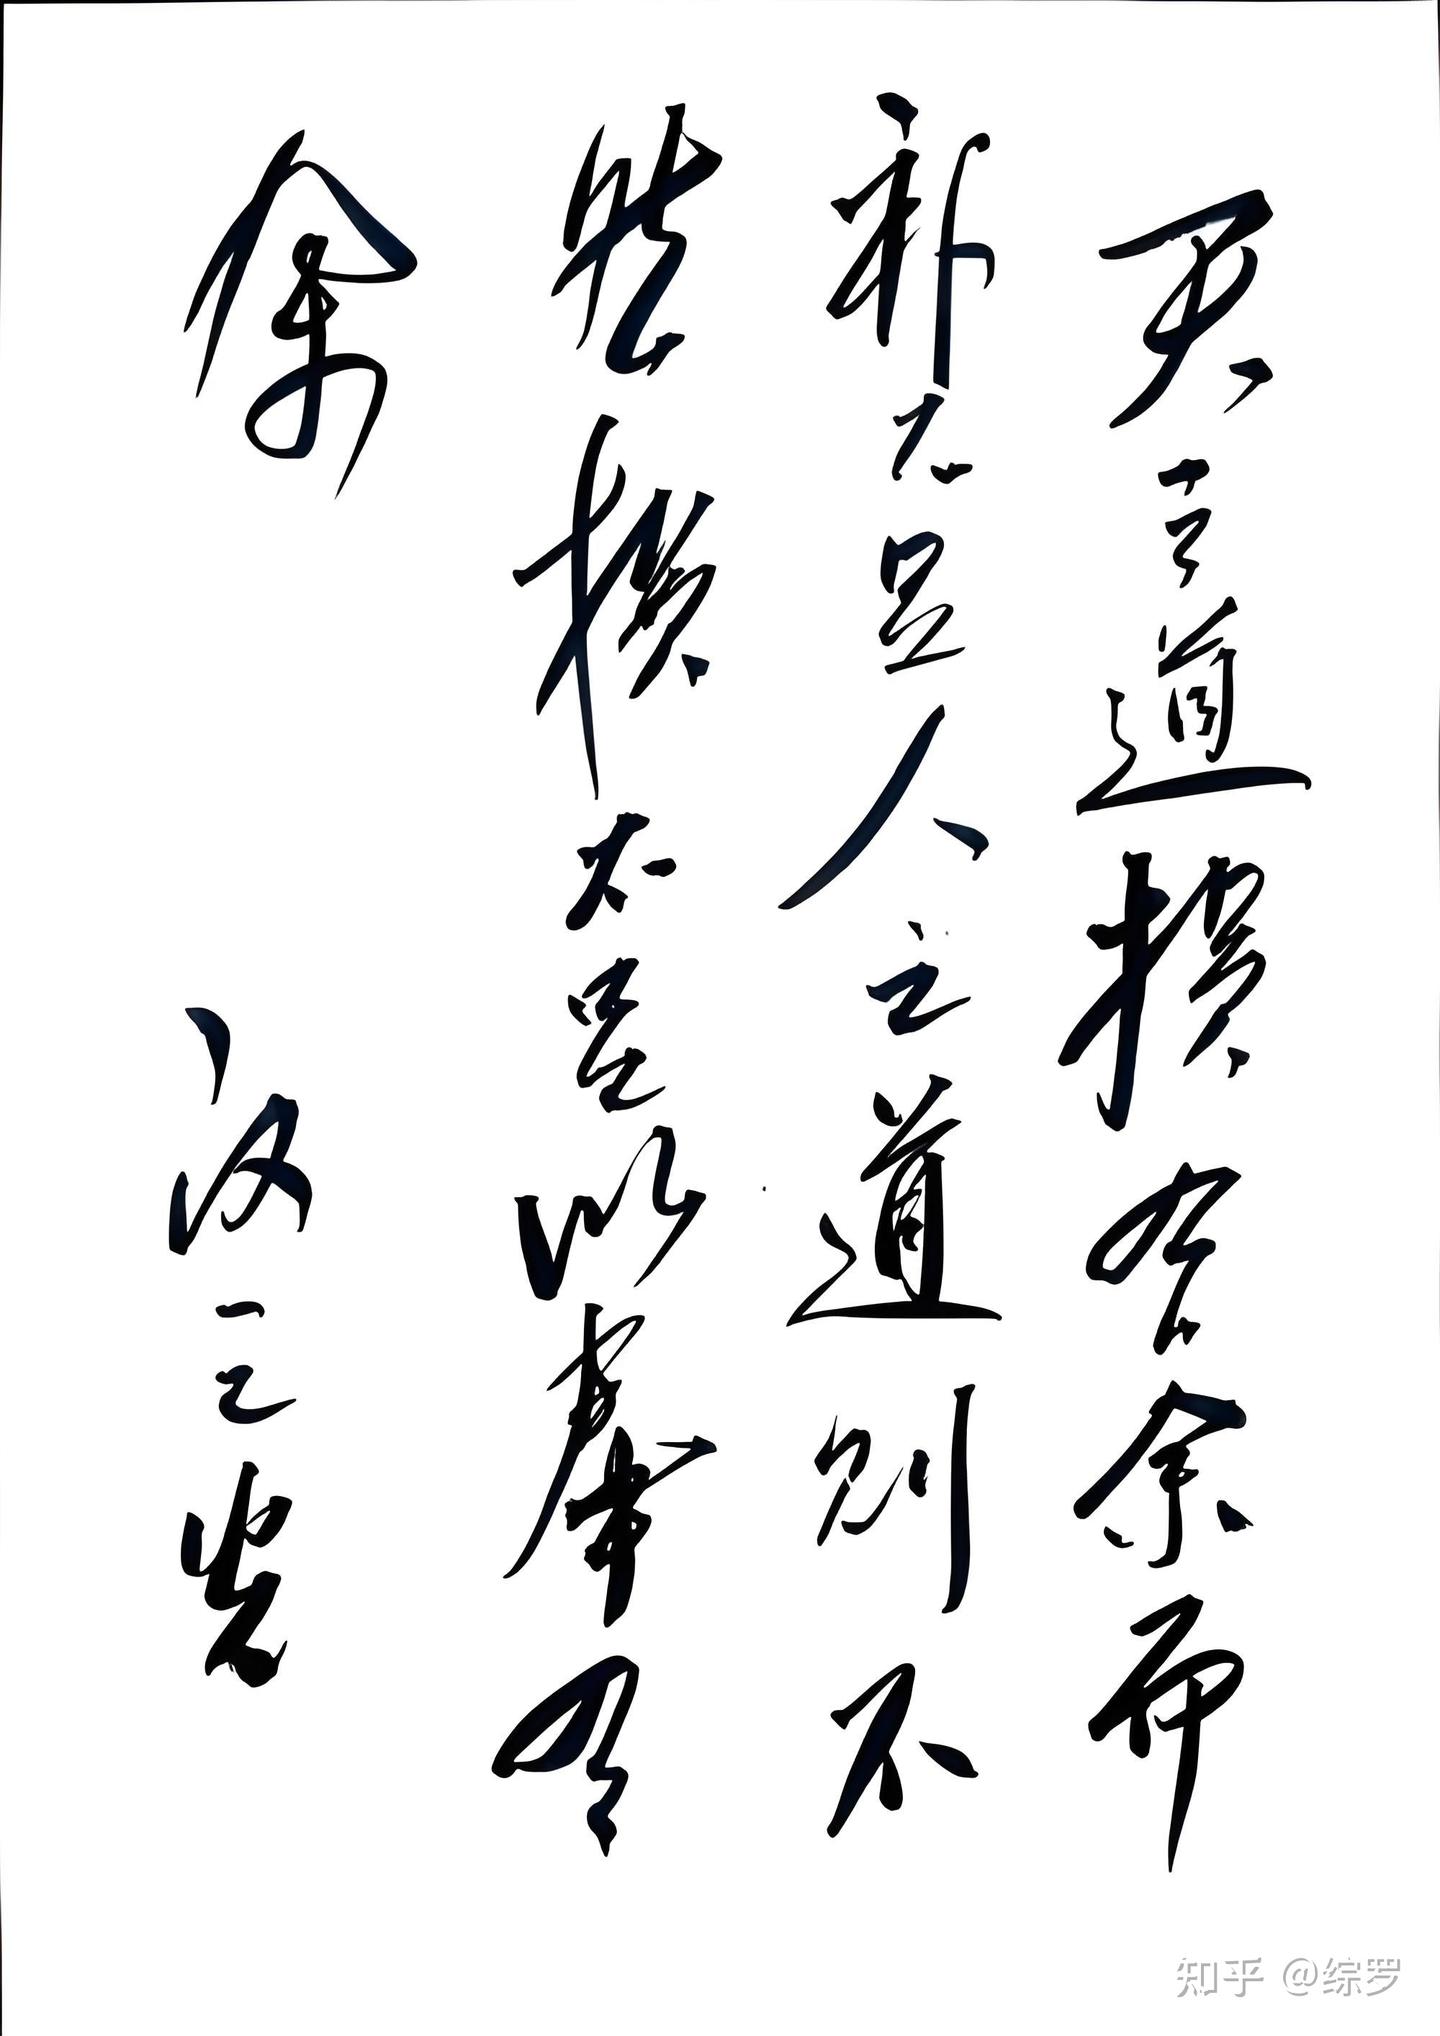 天之道损有余而
补不足人之道则不
然损不足以奉有
余
汉之光
知乎 @综罗